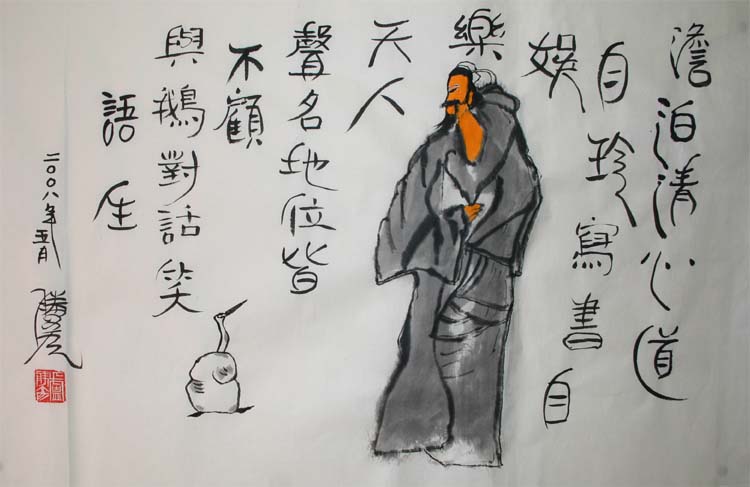 澹泊清心道
自珍寫書自
娛
樂
天人
聲名地位皆
不顧
與鵝對話笑
語生
二〇〇八年五月